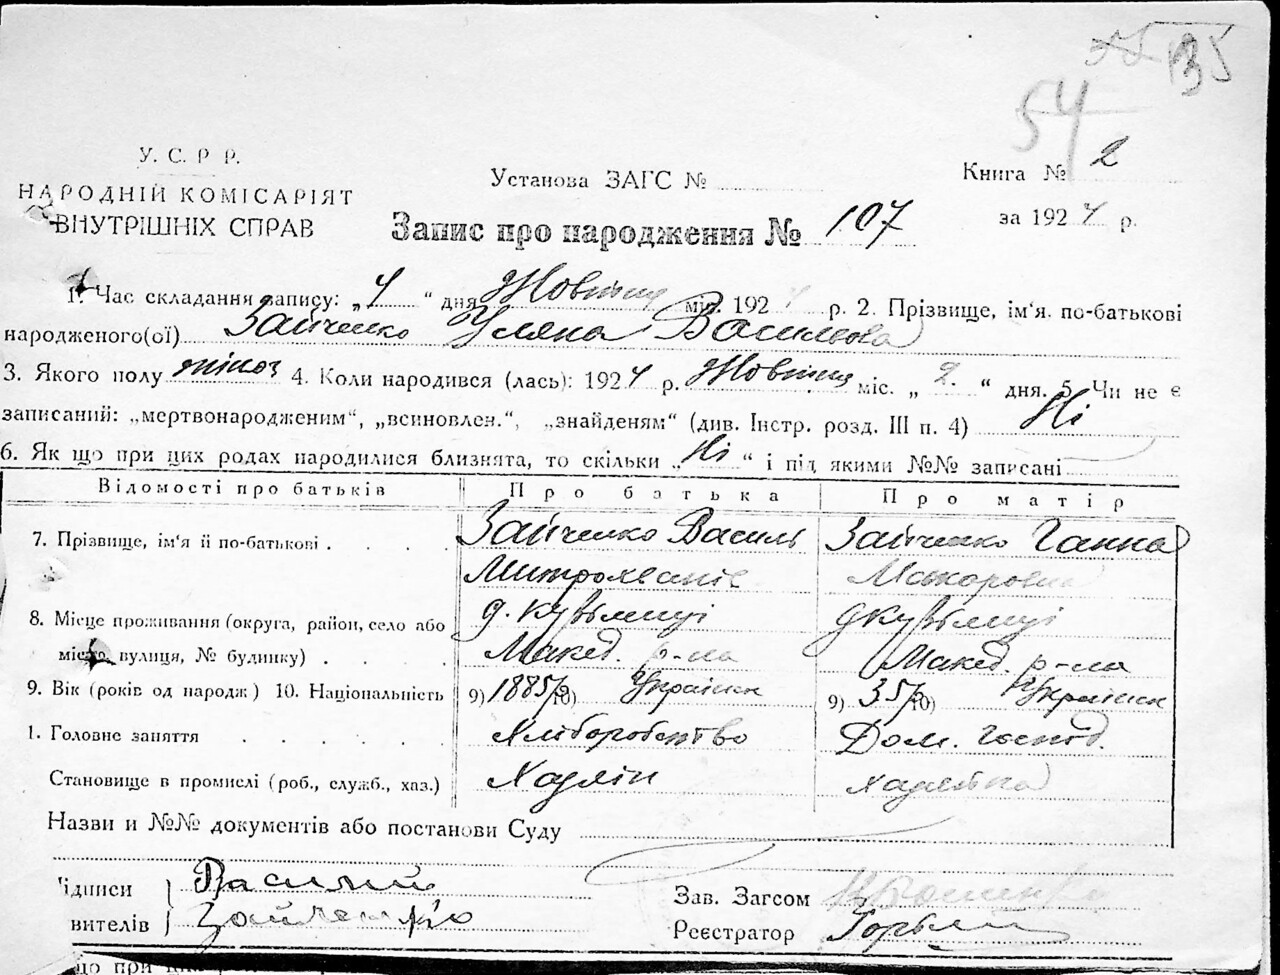 135
54
У. С. Р Р.
НАРОДНІЙ КОМІСАРІЯТ
ВНУТРІШНІХ СПРАВ
Установа ЗАГС №
Книга № 2
Запис про народження № 107
за 1924 р.
1. Час складання запису: „4“ дня Жовтня міс. 1924 р. 2. Прізвище, ім'я. по-батькові
народженого(ої) Зайченко Уляна Васильова
3. Якого полу жіноч 4. Коли народився (лась): 1924 р. Жовтня міс. „2.“ дня. 5. Чи не є
записаний: „мертвонародженим“, „всиновлен.“, „знайденям“ (див. Інстр. розд. III п. 4) Ні
6. Як що при цих родах народилися близнята, то скільки „Ні“ і під якими №№ записані
Відомості про батьків Про батька Про матір
7. Прізвище, ім'я й по-батькові . . . . Зайченко Василь Зайченко Ганна
Митрохванів Макаровна
8. Місце проживання (округа, район, село або д. Кувьминці д Кувьминці
місто, вулиця, № будинку) . . . . Макед. р-на Макед. р-на
9. Вік (років од народж) 10. Національність 9) 1885р 10) Українск 9) 35р 10) Українск
1. Головне заняття . . . . . Хліборобство Дом. Госпід.
Становище в промислі (роб., служб., хаз.) Хазяїн хазяйка
Назви и №№ документів або постанови Суду
ідписи Василий
вителів Зайченко
Зав. Загсом
Реєстратор
що при